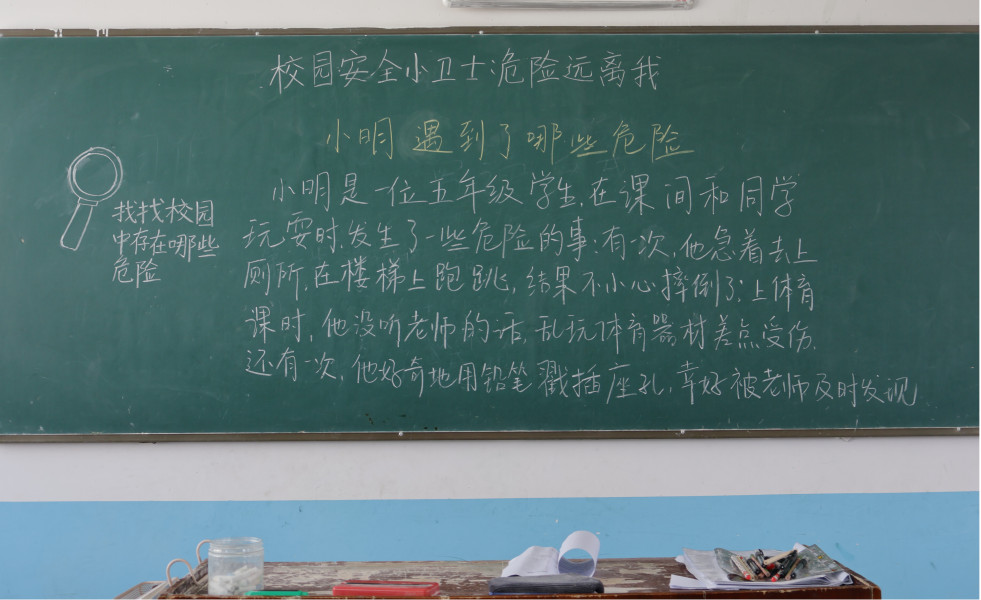 校园安全小卫士:危险远离我
小明遇到了哪些危险
找找校园
中存在哪些
危险
小明是一位五年级学生,在课间和同学
玩耍时,发生了一些危险的事:有一次,他急着去上
厕所,在楼梯上跑跳,结果不小心摔倒了;上体育
课时,他没听老师的话,乱玩体育器材差点受伤.
还有一次,他好奇地用铅笔戳插座孔,幸好被老师及时发现